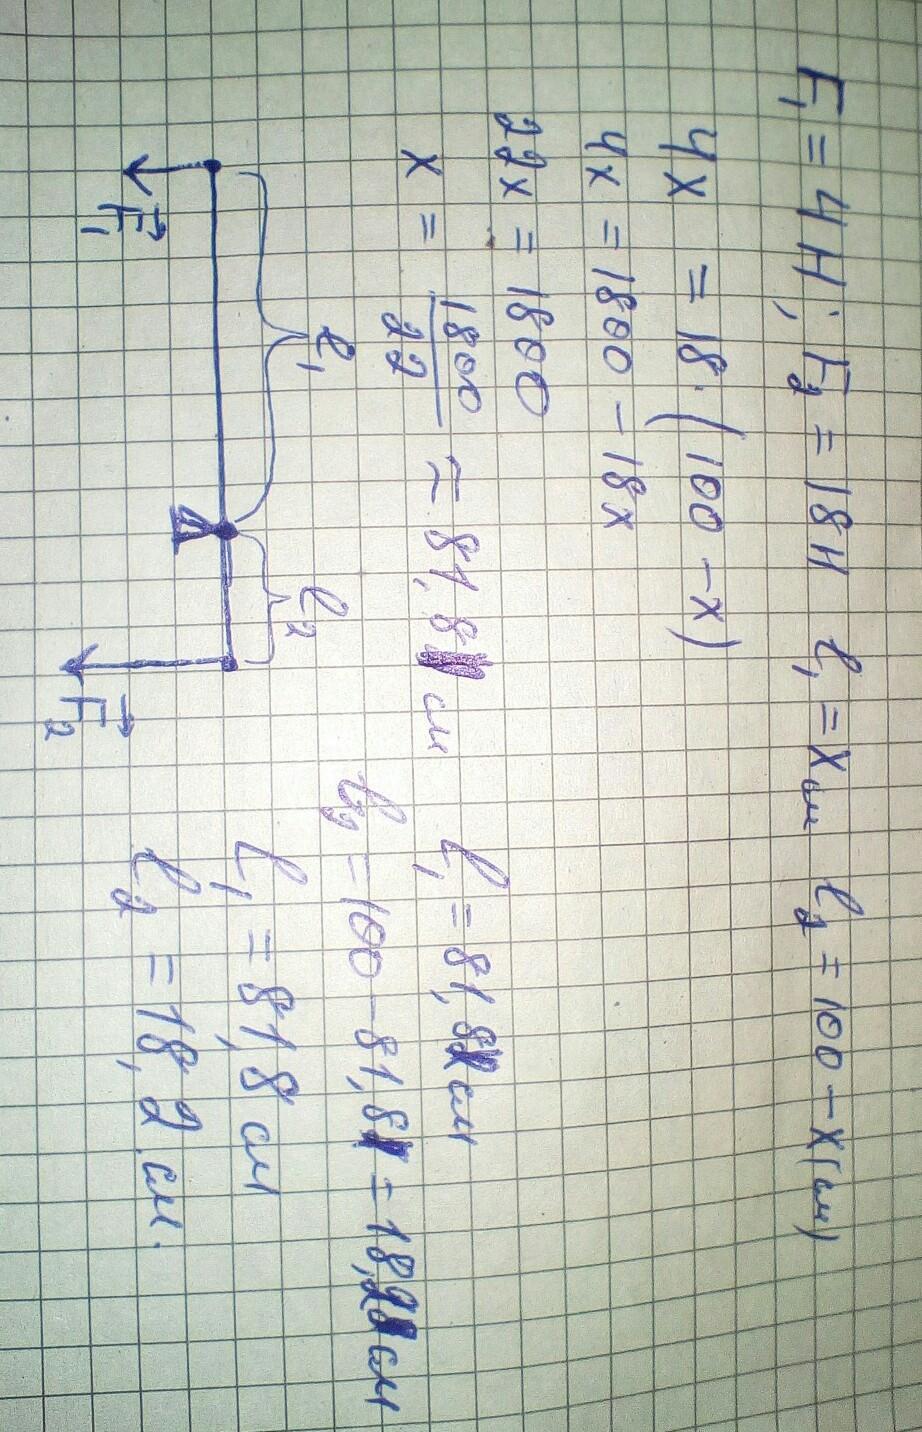 F₁ = 4 Н; F₂ = 18 Н l₁ = x см l₂ = 100 − x (см)
4x = 18·(100 − x)
4x = 1800 − 18x
22x = 1800
x = 1800/22 ≈ 81,8 см
l₁ = 81,8 см
l₂ = 100 − 81,8 = 18,2 см
l₁ = 81,8 см
l₂ = 18,2 см.
l₁ l₂
F₁ F₂